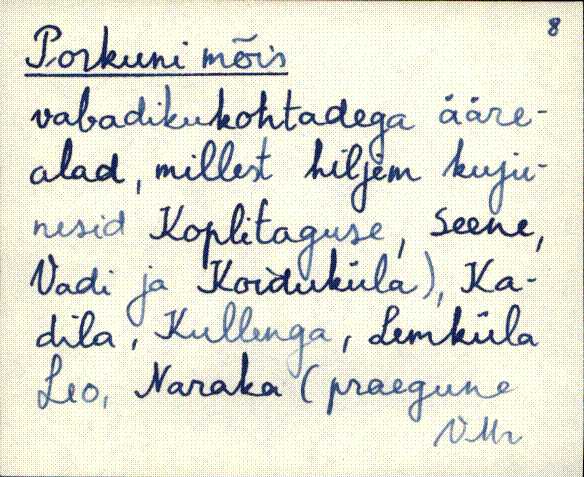 8
Porkuni mõis
vabadikukohtadega ääre-
alad, millest hiljem kuju-
nesid Koplitaguse, Seene,
Vadi ja Koiduküla), Ka-
dila, Kullenga, Lemküla
Leo, Naraka (praegune
VMr